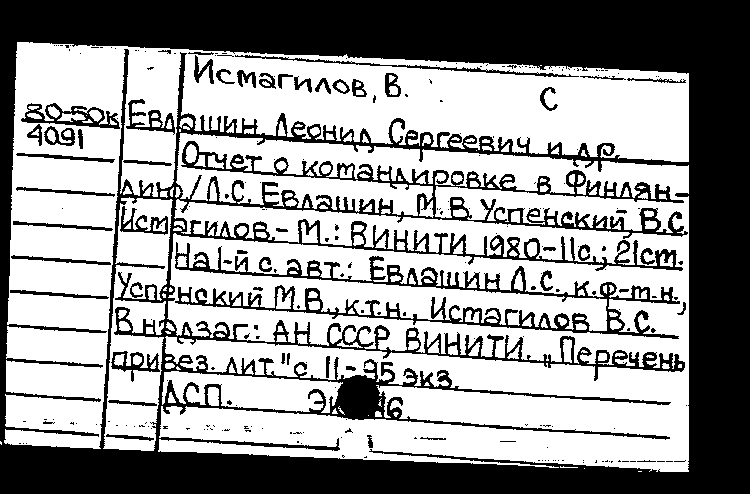 Исмагилов, В. С
80-50к Евлашин, Леонид Сергеевич и др.
4091 Отчет о командировке в Финлян-
дию/Л.С. Евлашин, М.В. Успенский, В.С.
Исмагилов.- М.: ВИНИТИ, 1980-11с.; 21см.
На 1-й с. авт.: Евлашин Л.С., к.ф-т.н.,
Успенский М.В., к.т.н., Исмагилов В.С.
В надзаг.: АН СССР, ВИНИТИ. „Перечень
привез. лит." с. 11.- 95 экз.
ДСП.